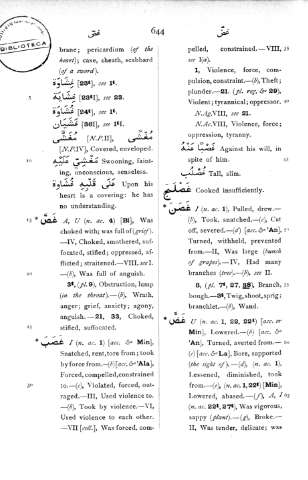 BIBLIOTECA
غش
644
غض
brane; pericardium (of the
heart); case, sheath, scabbard
(of a sword).
غشاوة [23t], see 1t.
غشاية [23tI], see 23.
غشيان [36I], see 1t.
مغشي [N.P.II], مغشى
[N.P.IV], Covered, enveloped.
مغشي عليه Swooning, faint-
ing, unconscious, senseless.
على قلبه غشاوة Upon his
heart is a covering: he has
no understanding.
* غص A, U (n. ac. 4) [Bi], Was
choked with; was full of (grief).
—IV, Choked, smothered, suf-
focated, stifled; oppressed, af-
flicted; straitened.—VIII, see I.
—(b), Was full of anguish.
3t, (pl. 9), Obstruction, lump
(in the throat).—(b), Wrath,
anger; grief, anxiety; agony,
anguish.—21, 33, Choked,
stifled, suffocated.
* غصب I (n. ac. 1) [acc. & Min],
Snatched, rent, tore from; took
by force from.—(b) [acc. & 'Ala],
Forced, compelled, constrained
to.—(c), Violated, forced, out-
raged.—III, Used violence to.
—(b), Took by violence.—VI,
Used violence to each other.
—VII [coll.], Was forced, com-
pelled, constrained.—VIII,
see I(a).
1, Violence, force, com-
pulsion, constraint.—(b), Theft;
plunder.—21 (pl. reg. & 29),
Violent; tyrannical; oppressor.
N.Ag.VIII, see 21.
N.Ac.VIII, Violence, force;
oppression, tyranny.
غصبا عنه Against his will, in
spite of him.
غصلب Tall, slim.
غصلج Cooked insufficiently.
* غصن I (n. ac. 1), Pulled, drew.—
(b), Took, snatched.—(c), Cut
off, severed.—(d) [acc. & 'An],
Turned, withheld, prevented
from.—II, Was large (bunch
of grapes).—IV, Had many
branches (tree).—(b), see II.
3, (pl. 7t, 27, 28), Branch,
bough.—3t, Twig, shoot, sprig;
branchlet.—(b), Wand.
* غض U (n. ac. 1, 22, 22t) [acc. or
Min], Lowered.—(b) [acc. &
'An], Turned, averted from.—
(c) [acc. & La], Bore, supported
(the sight of).—(d), (n. ac. 1),
Lessened, diminished, took
from.—(e), (n. ac. 1, 22t) [Min],
Lowered, abased.—(f), A, I
(n. ac. 22t, 27t), Was vigorous,
sappy (plant).—(g), Broke.—
II, Was tender, delicate; was